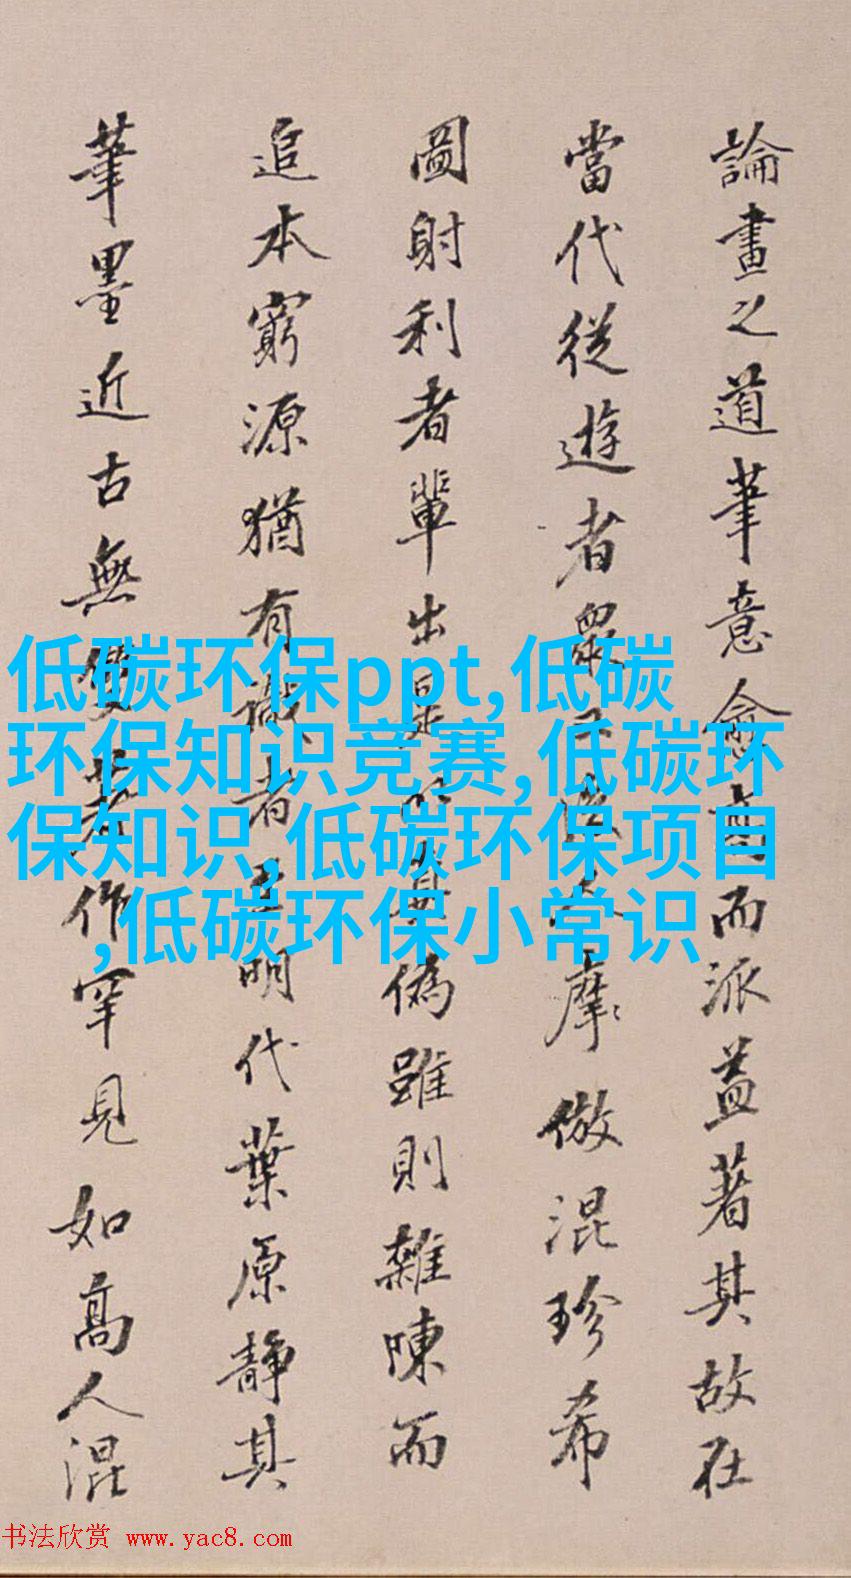 論畫之道筆意愈高而派益著其故在
當代從遊者眾摩倣混珍希
圖射利者輩出是以真偽雖則雜陳而
追本窮源猶有識者在明代葉原靜其
筆墨近古無雙著作罕見如高人混
低碳环保ppt,低碳
环保知识竞赛,低碳环
保知识,低碳环保项目
,低碳环保小常识
书法欣赏 www.yac8.com